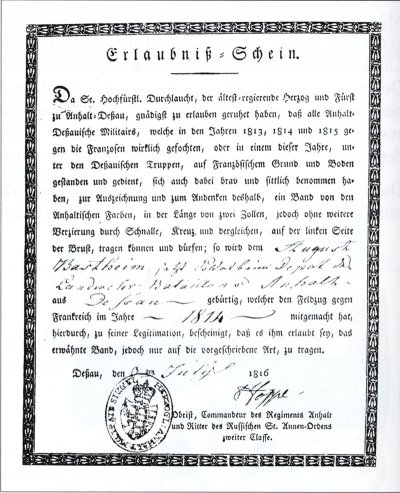 Erlaubniß-Schein.
Da Se. Hochfürstl. Durchlaucht, der ältest-regierende Herzog und Fürst
zu Anhalt-Deßau, gnädigst zu erlauben geruhet haben, daß alle Anhalt-
Deßauische Militairs, welche in den Jahren 1813, 1814 und 1815 ge-
gen die Franzosen wirklich gefochten, oder in einem dieser Jahre, un-
ter den Deßauischen Truppen, auf Französischem Grund und Boden
gestanden und gedient, sich auch dabei brav und sittlich benommen ha-
ben, zur Auszeichnung und zum Andenken deshalb, ein Band von den
Anhaltischen Farben, in der Länge von zwei Zollen, jedoch ohne weitere
Verzierung durch Schnalle, Kreuz und dergleichen, auf der linken Seite
der Brust, tragen können und dürfen; so wird dem August
Bastheim, jetzt Soldat beim Depot des
Landwehr Bataillons Anhalt
aus Dessau gebürtig, welcher den Feldzug gegen
Frankreich im Jahre 1814 mitgemacht hat,
hierdurch, zu seiner Legitimation, bescheinigt, daß es ihm erlaubt sey, das
erwähnte Band, jedoch nur auf die vorgeschriebene Art, zu tragen.
Deßau, den July 1816
Hoppe
Obrist, Commandeur des Regiments Anhalt
und Ritter des Russischen St. Annen-Ordens
zweiter Classe.